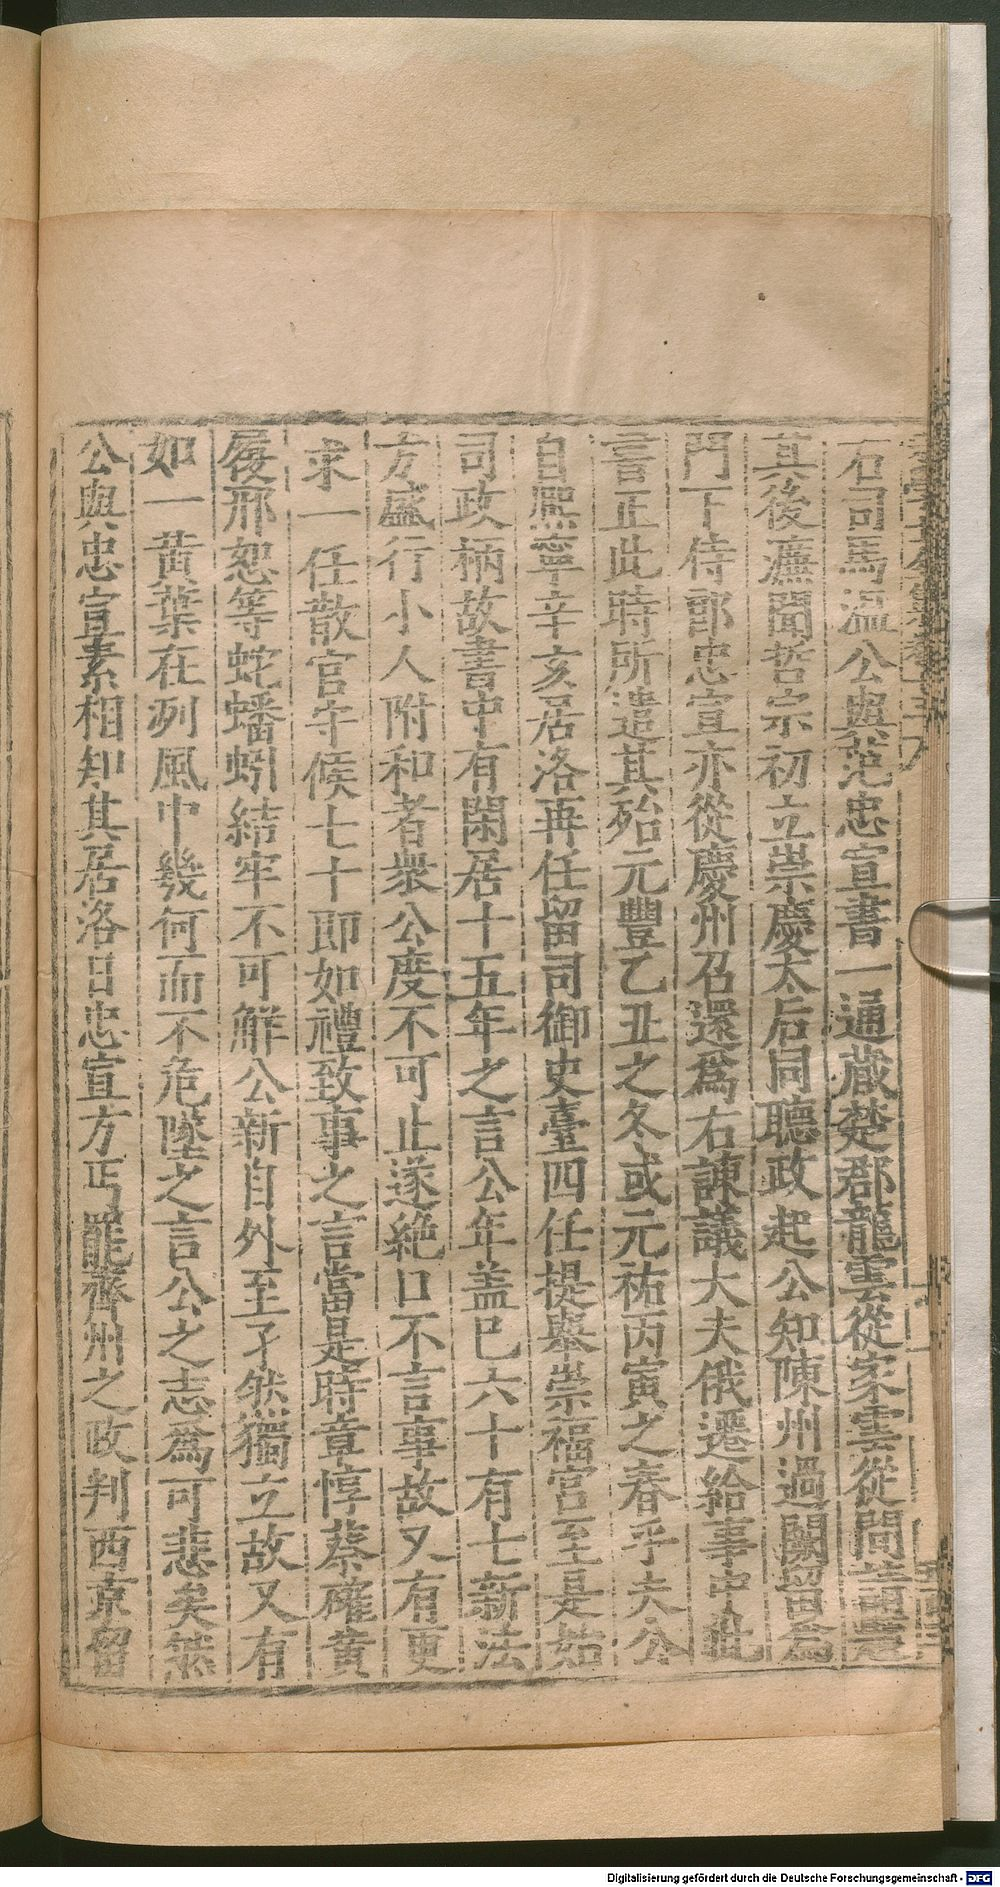 右司馬溫公與范忠宣書一通藏楚郡龍雲從家雲從間請題
其後廡聞哲宗初立崇慶太后同聽政起公知陳州過闕留為
門下侍郎忠宣亦從慶州召還爲右諫議大夫俄遷給事中此
言正此時所遣其殆元豐乙丑之冬或元祐丙寅之春乎夫公
自熈寧辛亥居洛再任留司御史臺四任提舉崇福宮至是始
司政柄故書中有閑居十五年之言公年盖巳六十有七新法
方盛行小人附和者衆公度不可止遂絶口不言事故又有更
求一任散官守候七十即如禮致事之言當是時章惇蔡確黄
履邢恕等蛇蟠蚓結牢不可觧公新自外至孑然獨立故又有
如一黃葉在洌風中幾何而不危墜之言公之志爲可悲矣然
公與忠宣素相知其居洛日忠宣方丐罷齊州之政判西京留
Digitalisierung gefördert durch die Deutsche Forschungsgemeinschaft - DFG